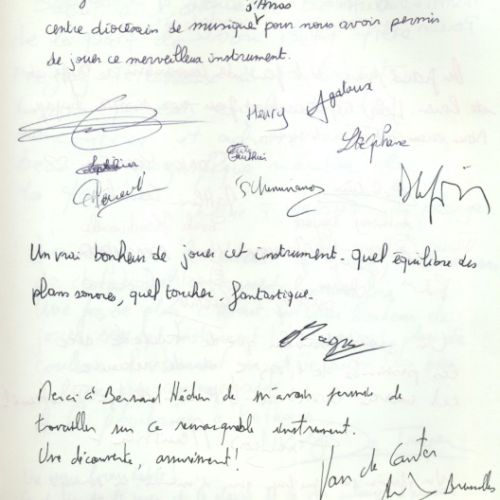 d'Arras
centre diocésain de musique pour nous avoir permis
de jouer ce merveilleux instrument.
Henry Agaloux
Stéphane
Un vrai bonheur de jouer cet instrument. Quel équilibre des
plans sonores, quel toucher. fantastique.
Merci à Bernard Hédin de m'avoir permis de
travailler sur ce remarquable instrument.
Une découverte, assurément!
Bruxelles